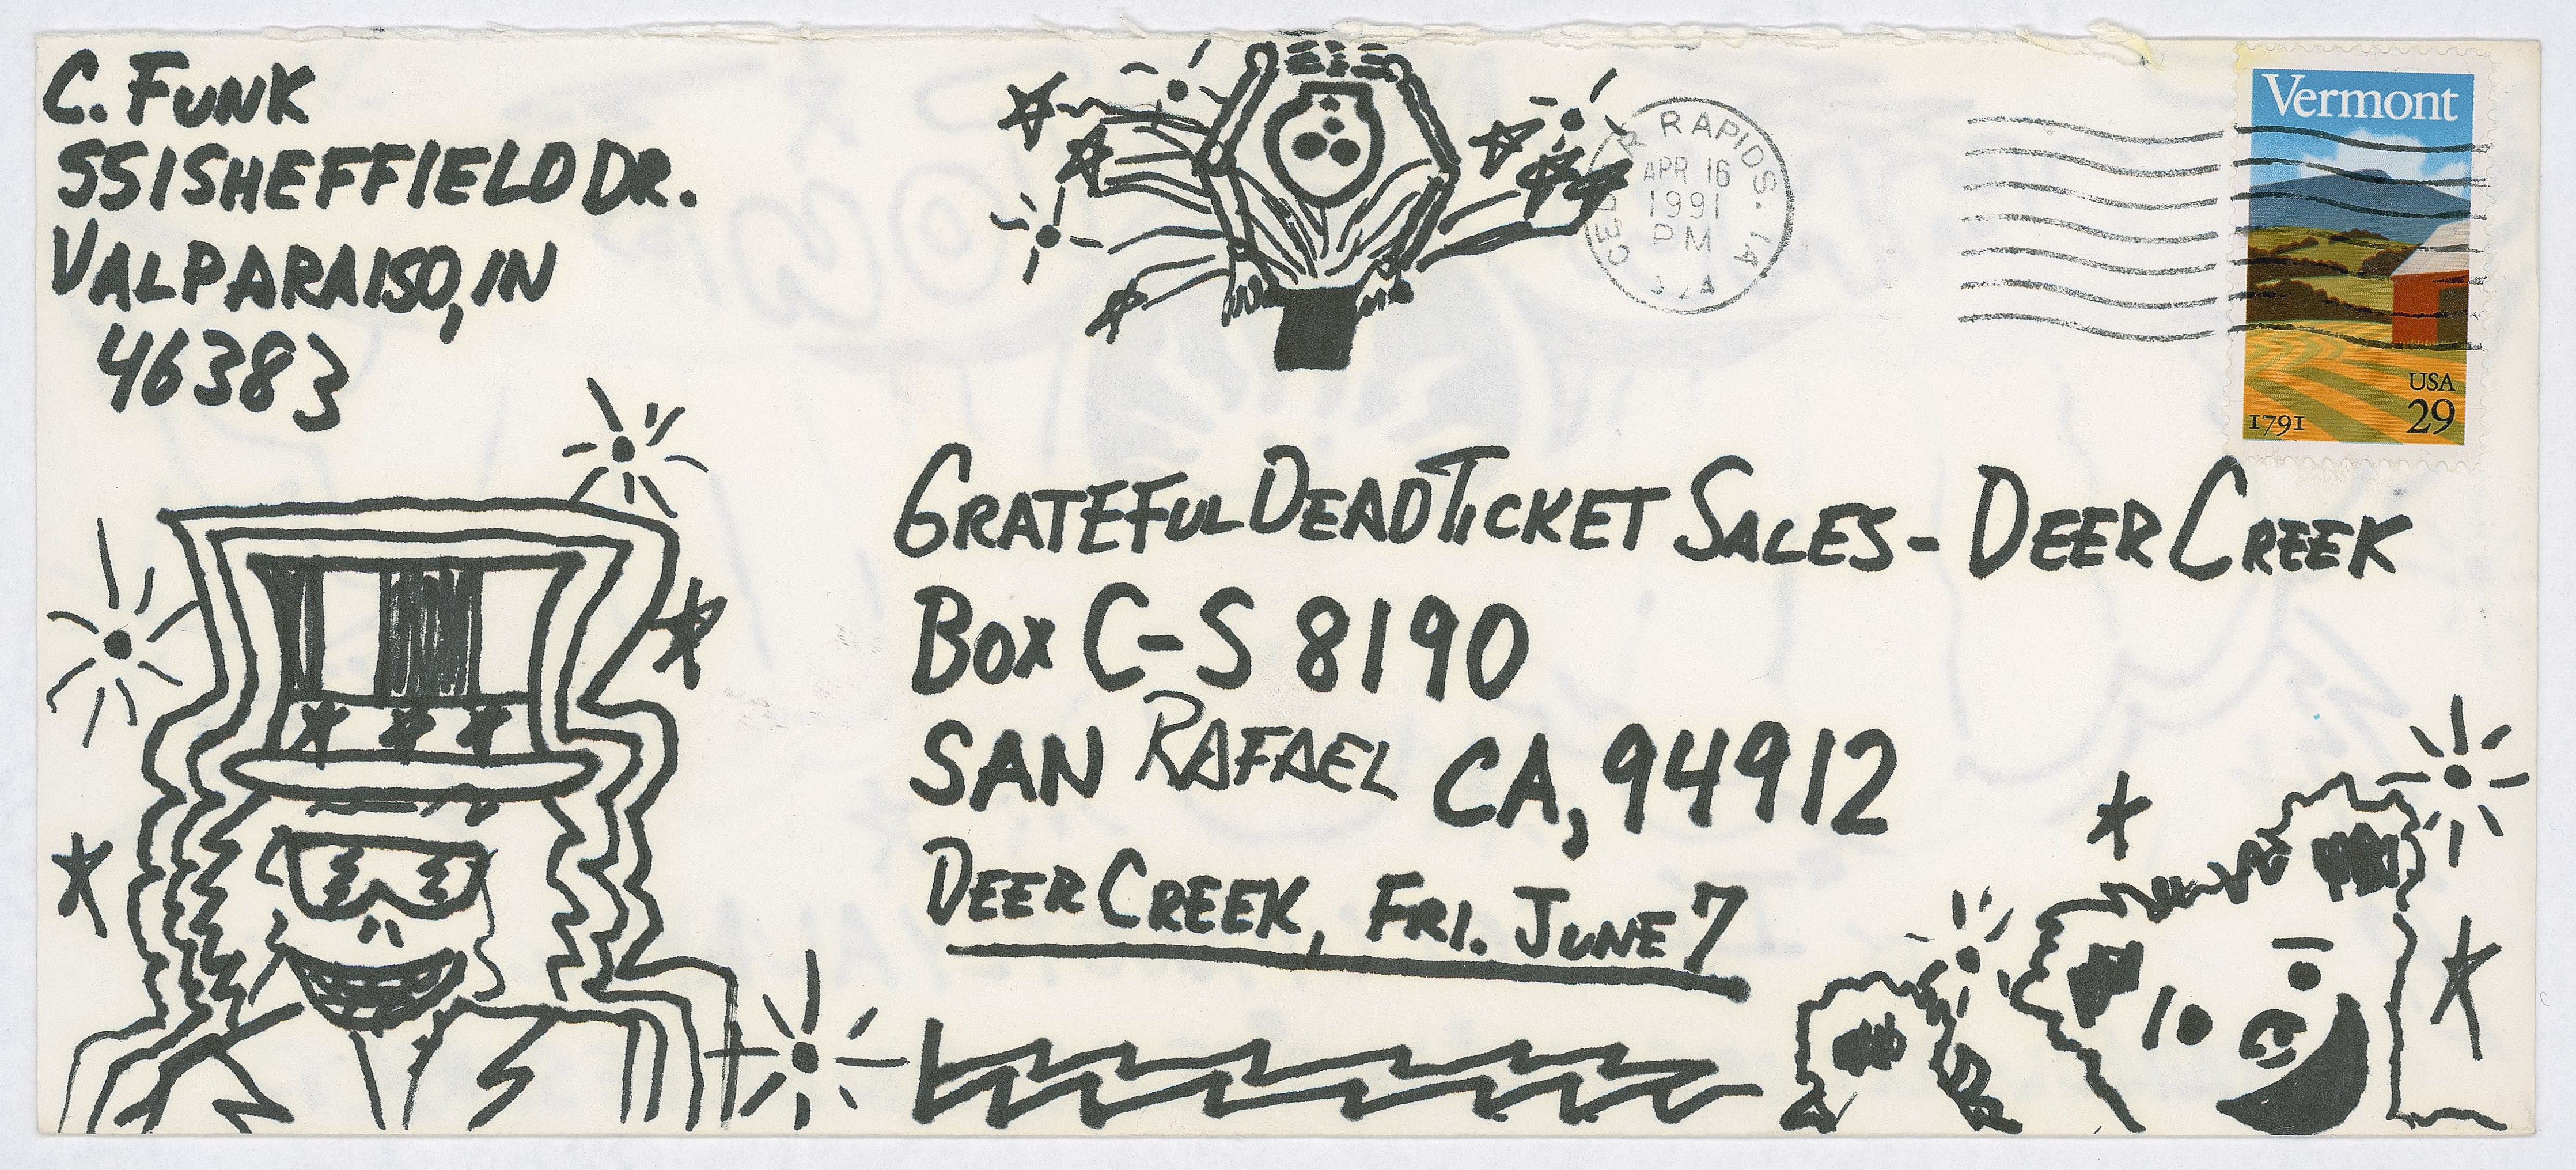 C. FUNK
551 SHEFFIELD DR.
VALPARAISO, IN
46383
CEDAR RAPIDS. IA
APR 16
1991
PM
Vermont
USA
1791 29
GRATEFUL DEAD TICKET SALES - DEER CREEK
BOX C-S 8190
SAN RAFAEL CA, 94912
DEER CREEK, FRI. JUNE 7